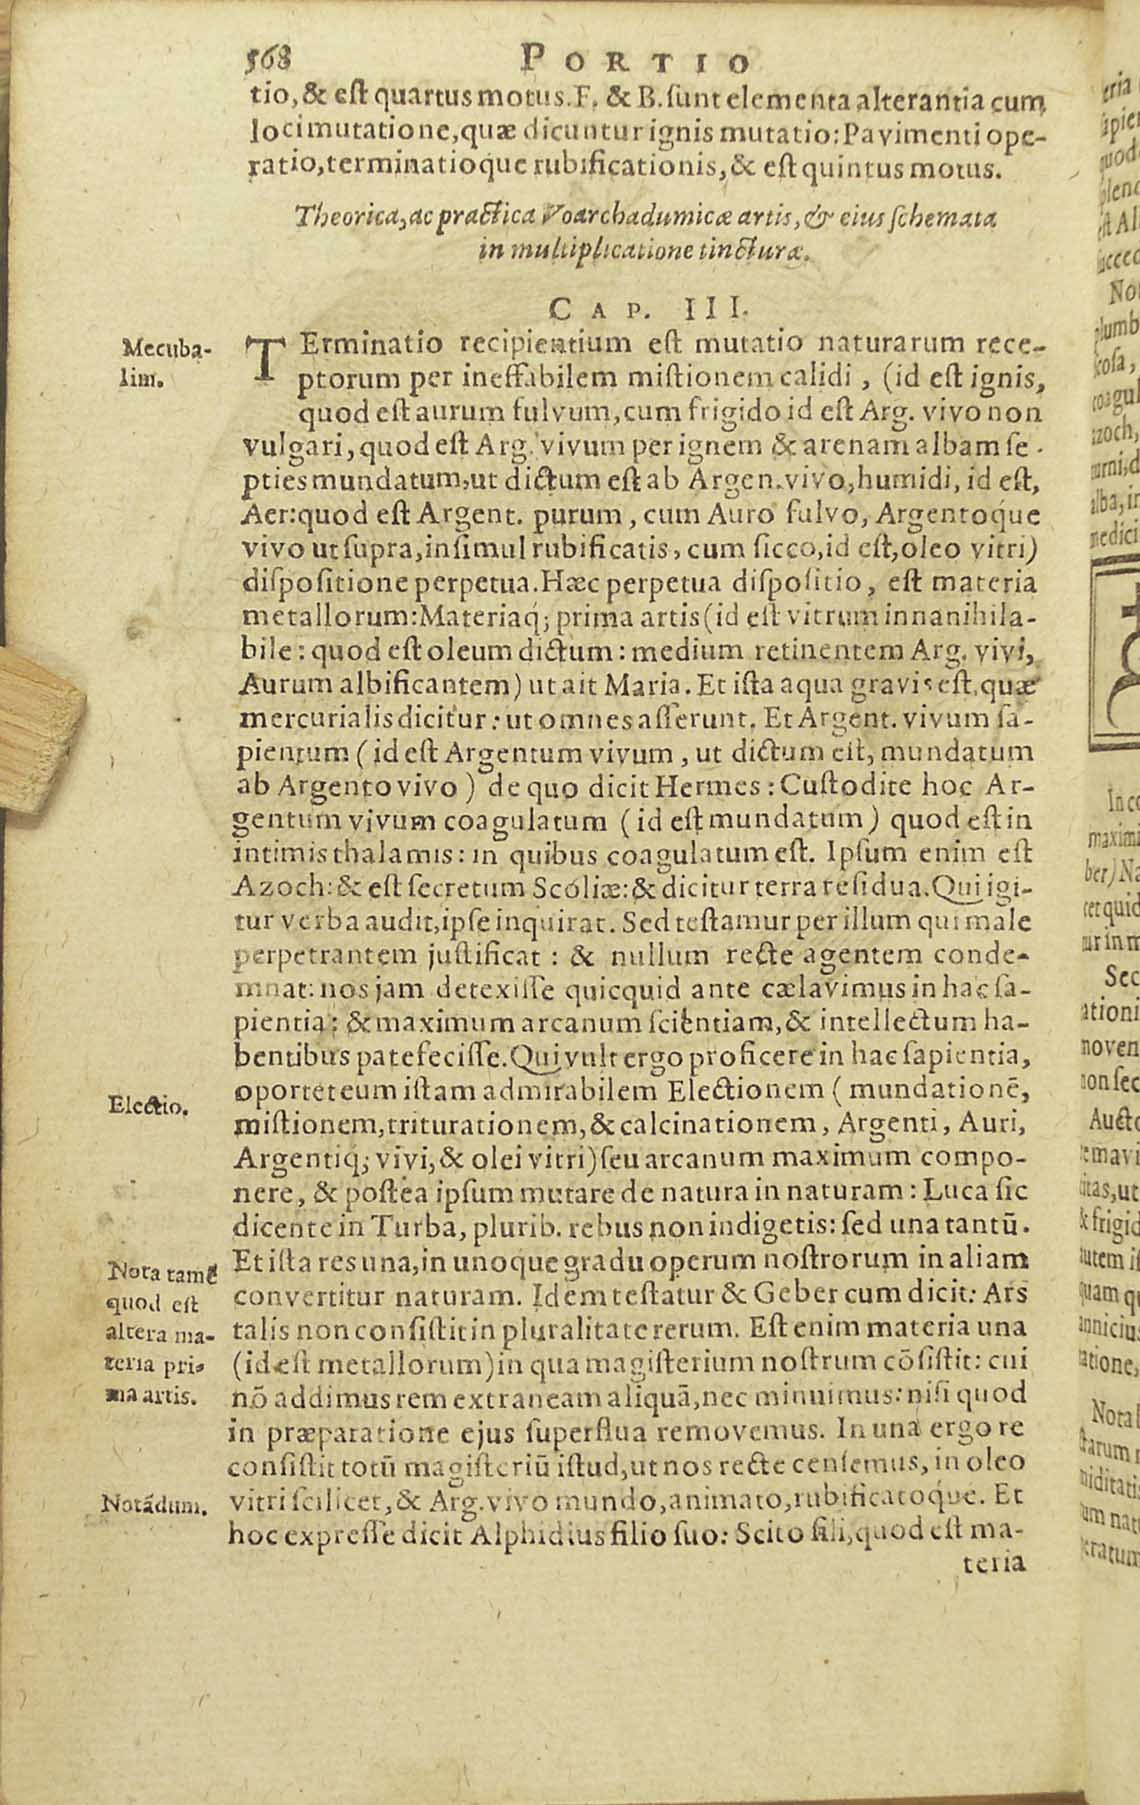 568
PORTIO
tio, & est quartus motus. F. & B. sunt elementa alterantia cum
loci mutatione, quæ dicuntur ignis mutatio: Pavimenti ope-
ratio, terminatioque rubificationis, & est quintus motus.
Theorica, ac practica Voarchadumicæ artis, & eius schemata
in multiplicatione tincturæ.
CAP. III.
Mecuba-
lim.
TErminatio recipientium est mutatio naturarum rece-
ptorum per ineffabilem mistionem calidi, (id est ignis,
quod est aurum fulvum, cum frigido id est Arg. vivo non
vulgari, quod est Arg. vivum per ignem & arenam albam se-
pties mundatum, ut dictum est ab Argen. vivo, humidi, id est,
Aer: quod est Argent. purum, cum Auro fulvo, Argentoq́ue
vivo ut supra, insimul rubificatis, cum sicco, id est, oleo vitri)
dispositione perpetua. Hæc perpetua dispositio, est materia
metallorum: Materiaq́; prima artis (id est vitrum innanihila-
bile: quod est oleum dictum: medium retinentem Arg. vivi,
Aurum albificantem) ut ait Maria. Et ista aqua gravis est, quæ
mercurialis dicitur: ut omnes asserunt. Et Argent. vivum sa-
pientum (id est Argentum vivum, ut dictum est, mundatum
ab Argento vivo) de quo dicit Hermes: Custodite hoc Ar-
gentum vivum coagulatum (id est mundatum) quod est in
intimis thalamis: in quibus coagulatum est. Ipsum enim est
Azoch: & est secretum Scoliæ: & dicitur terra residua. Qui igi-
tur verba audit, ipse inquirat. Sed testamur per illum qui male
perpetrantem justificat: & nullum recte agentem conde-
mnat: nos jam detexisse quicquid ante cælavimus in hac sa-
pientia: & maximum arcanum scientiam, & intellectum ha-
bentibus patefecisse. Qui vult ergo proficere in hac sapientia,
Electio.
oportet eum istam admirabilem Electionem (mundationē,
mistionem, triturationem, & calcinationem, Argenti, Auri,
Argentiq́; vivi, & olei vitri) seu arcanum maximum compo-
nere, & postea ipsum mutare de natura in naturam: Luca sic
dicente in Turba, plurib. rebus non indigetis: sed una tantū.
Nota tamē
quod est
altera ma-
teria pri-
ma artis.
Et ista res una, in unoque gradu operum nostrorum in aliam
convertitur naturam. Idem testatur & Geber cum dicit: Ars
talis non consistit in pluralitate rerum. Est enim materia una
(id est metallorum) in qua magisterium nostrum cōsistit: cui
nō addimus rem extraneam aliquā, nec minuimus: nisi quod
in præparatione ejus superflua removemus. In una ergo re
consistit totū magisteriū istud, ut nos recte censemus, in oleo
Notādum.
vitri scilicet, & Arg. vivo mundo, animato, rubificatoq́ue. Et
hoc expresse dicit Alphidius filio suo: Scito fili, quod est ma-
teria